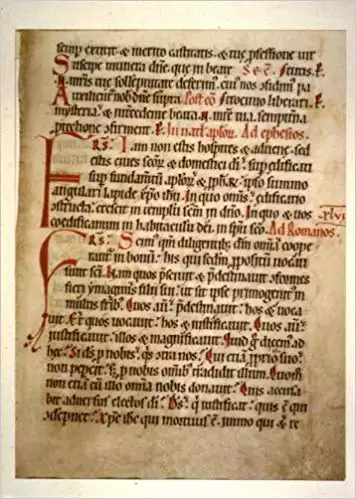 semp extitit. & merito castitatis. & tue pfessione uir
Suscipe munera dñe. que in beate
mris tue sollepnitate deferim. cui nos
pcẽ
mysteria. & intercedente beata N. mr̃e tua sempitna
ptectione ofirment. In nat. aplor. Ad ephesios.
Frs. Iam non estis hospites & aduene. sed
estis ciues scor. & domestici di. supedificati
sup fundamtũ aplor. & pph. ipso summo
angulari lapide xpo ihu. In quo omis edificatio
ostructa. crescit in templũ scm in dño. In quo & uos
xlvi
coedificamini in habitaculũ dei. in spu sco. Ad Romanos.
Frs. Scim qm diligentib; dm omia coope
rant in bonũ. his qui scdm ppositũ uocati
sunt sci. Nam quos psciuit & pdestinauit oformes
fieri ymaginis filii sui. ut sit ipse primogenit in
multis frib;. Quos aut pdestinauit. hos & uoca
uit. Et quos uocauit. hos & iustificauit. Quos aut
iustificauit. illos & magnificauit. Quid g dicem ad
hec. Si ds p nobis. qs otra nos. Qui etiã pprio suo
non pepcit. sz p nobis omib; tradidit illum. Quom
non etiã cũ illo omia nobis donauit. Quis accusa
bit aduersus electos di. Ds q iustificat. quis e qui
odepnet. Xpc ihc qui mortuus e. immo qui & re